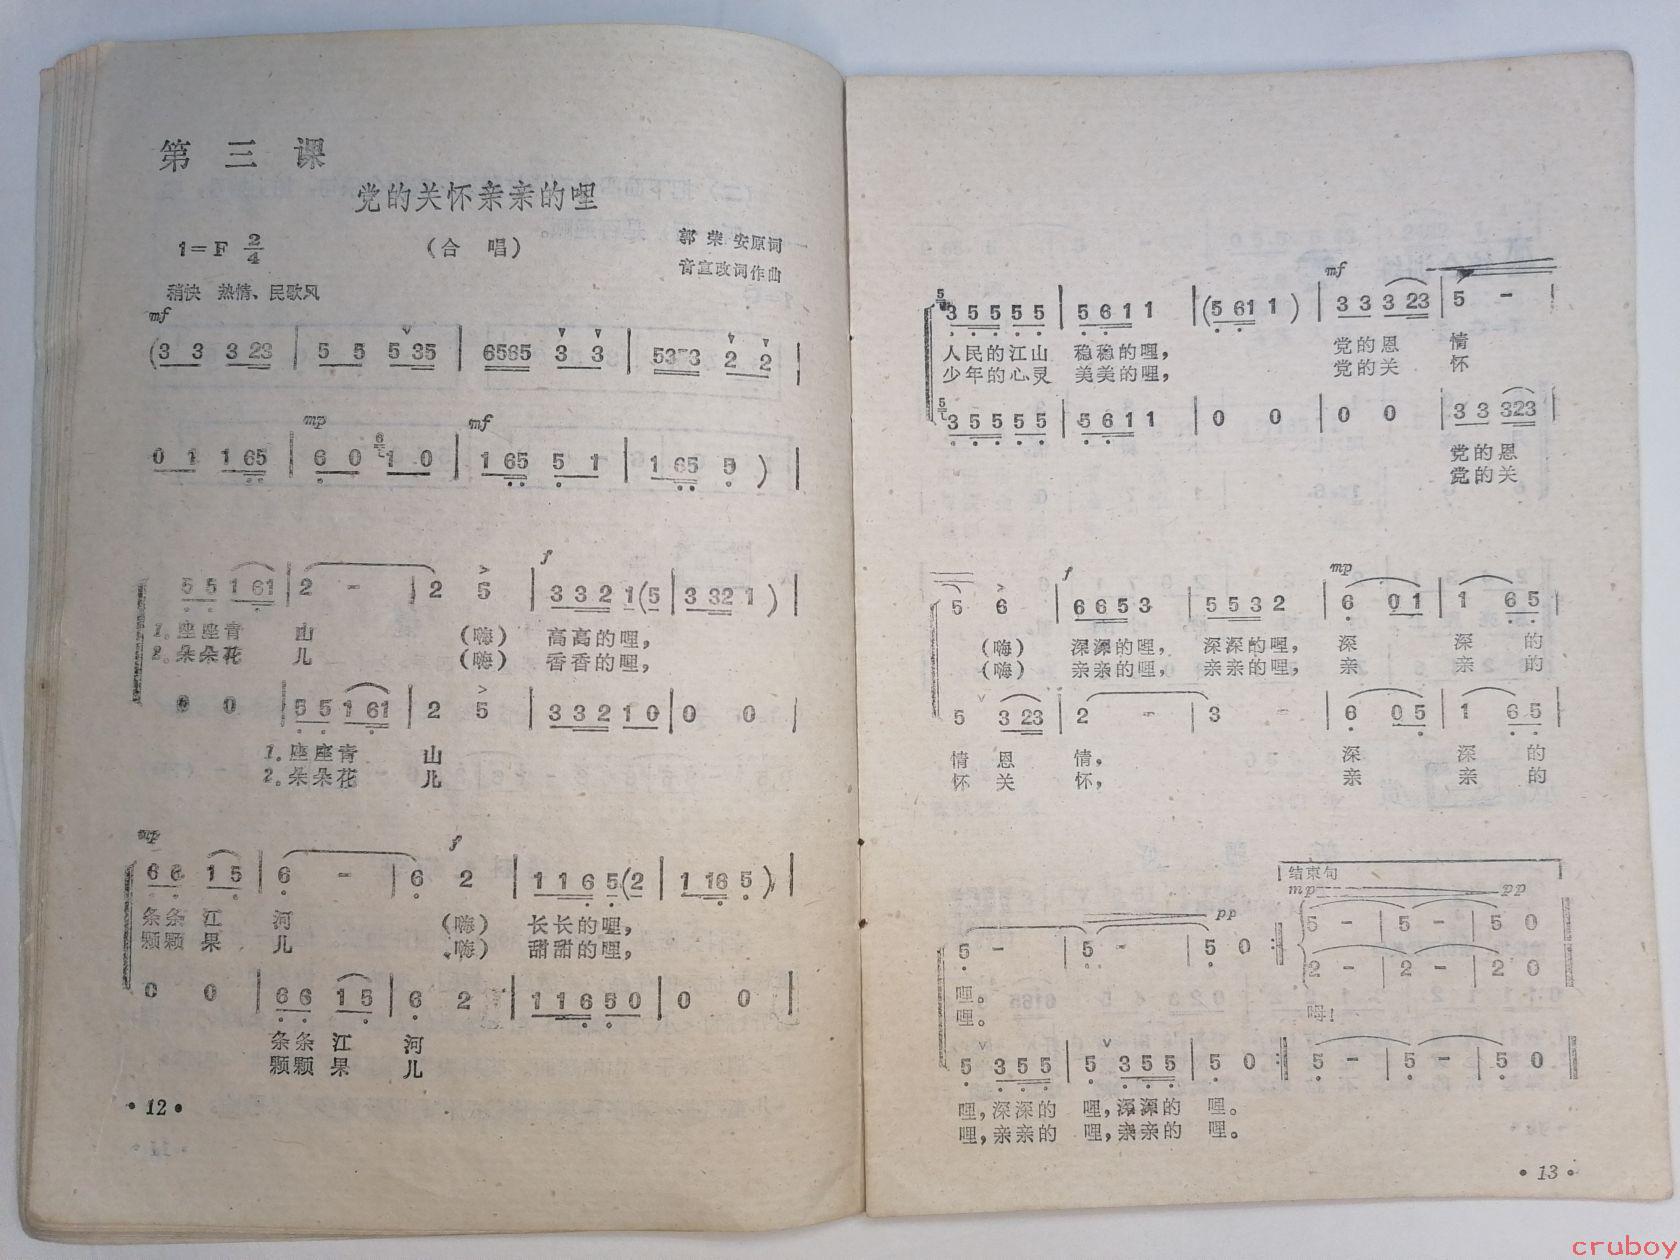 第 三 课
党的关怀亲亲的哩
1=F 2/4
（合 唱）
郭 荣 安原词
音宣改词作曲
稍快 热情、民歌风
mf
(3 3 3 23 | 5 5 5 35 | 6565 3 3 | 5353 2 2 |
mp mf
0 1 1 65 | 6 0 6 1 0 | 1 65 5 1 | 1 65 5 ) |
f
5 5 1 61 | 2 - | 2 5 | 3 3 2 1 (5 | 3 32 1 ) |
1.座座青 山 （嗨） 高高的哩，
2.朵朵花 儿 （嗨） 香香的哩，
0 0 | 5 5 1 61 | 2 5 | 3 3 2 1 0 | 0 0 |
1.座座青 山
2.朵朵花 儿
mp f
6 6 1 5 | 6 - | 6 2 | 1 1 6 5 (2 | 1 16 5 ) |
条条 江 河 （嗨） 长长的哩，
颗颗 果 儿 （嗨） 甜甜的哩，
0 0 | 6 6 1 5 | 6 2 | 1 1 6 5 0 | 0 0 |
条条 江 河
颗颗 果 儿
·12·
mf
5 3 5 5 5 5 | 5 6 1 1 1 | (5 61 1 ) | 3 3 3 23 | 5 - |
人民的江山 稳稳的哩， 党的恩 情
少年的心灵 美美的哩， 党的关 怀
5 3 5 5 5 5 | 5 6 1 1 1 | 0 0 | 0 0 | 3 3 323 |
党的恩
党的关
f mp
5 6 | 6 6 5 3 | 5 5 3 2 | 6 0 1 | 1 6 5 |
（嗨） 深深的哩， 深深的哩， 深 深 的
（嗨） 亲亲的哩， 亲亲的哩， 亲 亲 的
5 3 23 | 2 - | 3 - | 6 0 5 | 1 6 5 |
情 恩 情， 深 深 的
怀 关 怀， 亲 亲 的
结束句
pp mp pp
5 - | 5 - | 5 0 :‖ 5 - | 5 - | 5 0 ‖
2 - | 2 - | 2 0
哩。 哩。
5 3 5 5 | 5 3 5 5 | 5 0 :‖ 5 - | 5 - | 5 0 ‖
哩，深深的 哩，深深的 哩。
哩，亲亲的 哩，亲亲的 哩。
·13·
cruboy